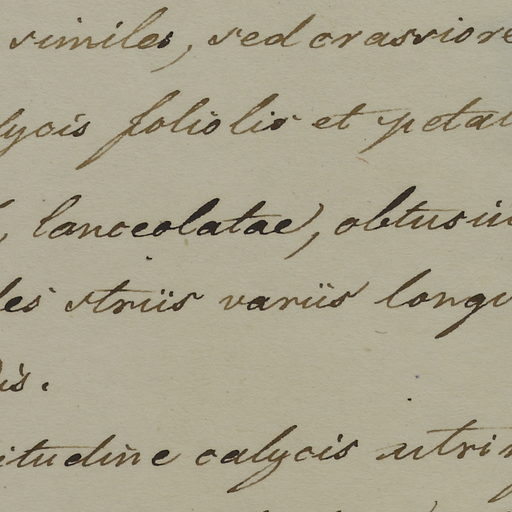 similes, sed crassiore
lycis foliolis et petal
lanceolatae, obtusiu
les striis variis longi
is.
itudine calycis utrin